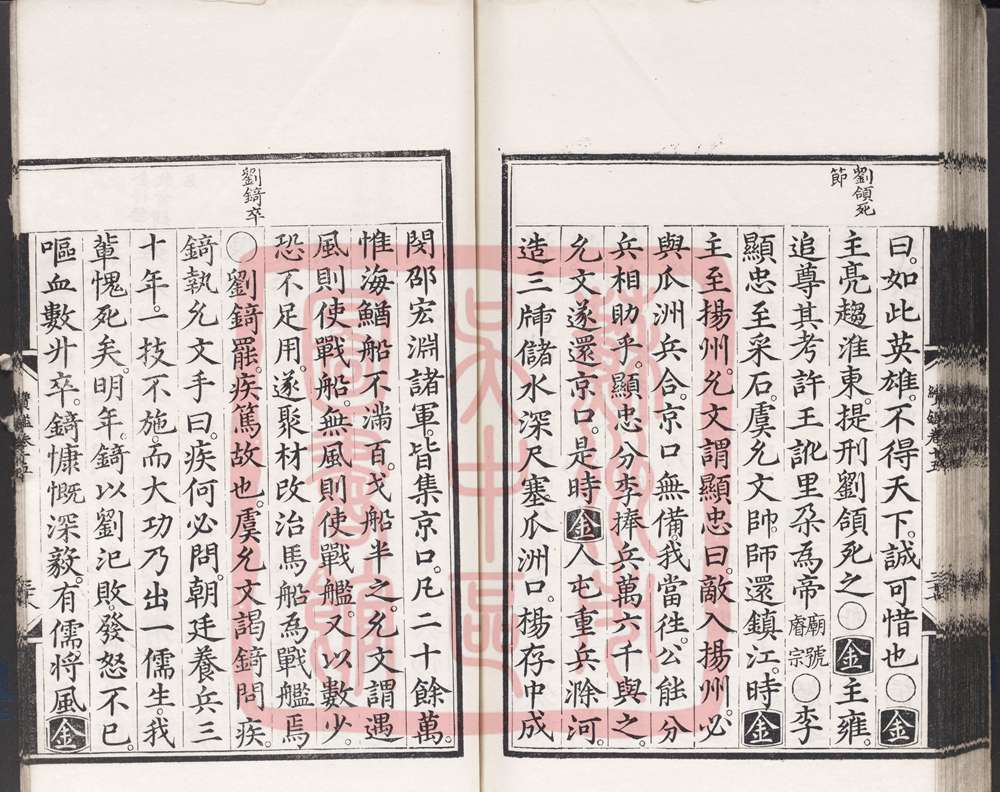 劉頜死
節
曰。如此英雄。不得天下。誠可惜也〇金
主亮趨淮東。提刑劉頜死之〇金主雍。
追尊其考許王訛里朶為帝廟號睿宗〇李
顯忠至采石。虞允文帥師還鎮江。時金
主至揚州。允文謂顯忠曰。敵入揚州。必
與瓜洲兵合。京口無備。我當往。公能分
兵相助乎。顯忠分李捧兵萬六千與之。
允文遂還京口。是時金人屯重兵滁河
造三牐儲水深尺塞瓜洲口。楊存中成
閔邵宏淵諸軍。皆集京口。凡二十餘萬。
惟海鰌船不滿百。戈船半之。允文謂遇
風則使戰船。無風則使戰艦。又以數少。
恐不足用。遂聚材改治馬船為戰艦焉
劉錡卒
〇劉錡罷。疾篤故也。虞允文謁錡問疾。
錡執允文手曰。疾何必問。朝廷養兵三
十年。一技不施。而大功乃出一儒生。我
輩愧死矣。明年。錡以劉汜敗。發怒不已。
嘔血數升卒。錡慷慨深毅。有儒將風金